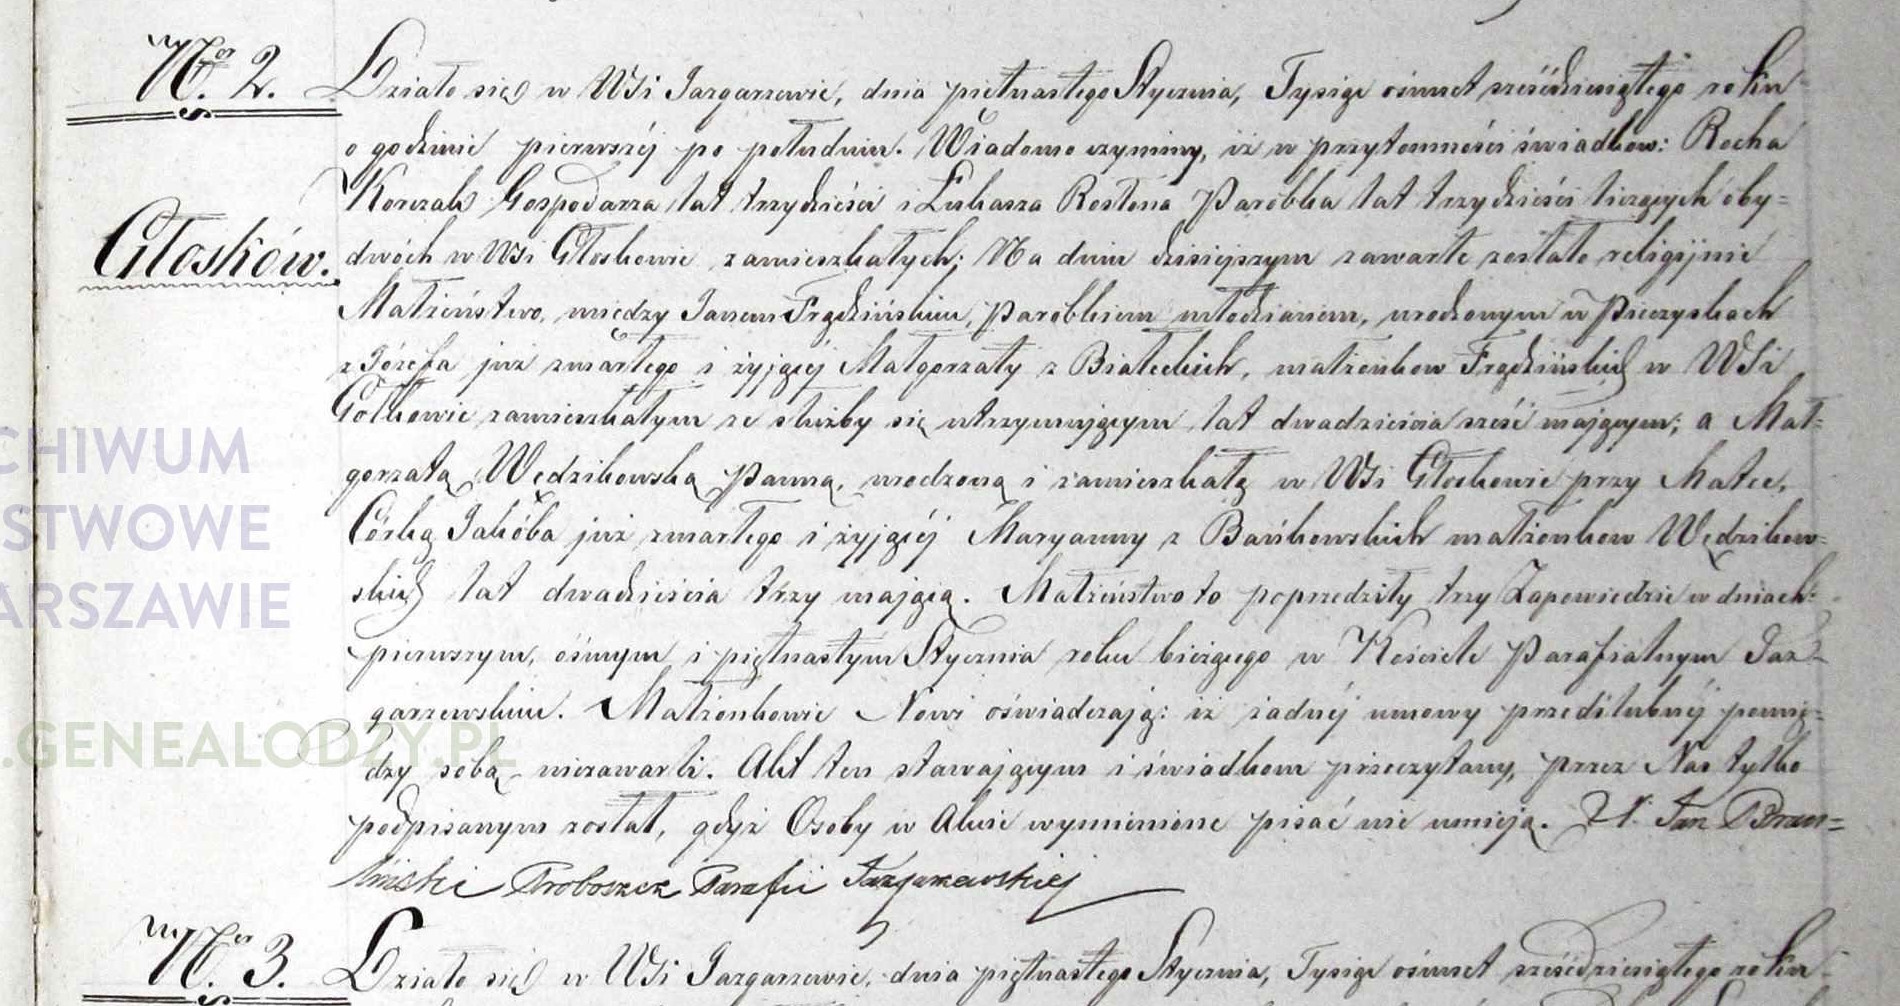 Nr. 2.
Działo się w Wsi Jazgarzewie, dnia piętnastego Stycznia, Tysiąc ośmset sześćdziesiątego roku
o godzinie pierwszéj po południu. Wiadomo czyniemy, iż w przytomności świadków: Rocha
Korczak Gospodarza lat trzydzieści i Łukasza Rostona Parobka lat trzydzieści liczących oby=
Głosków.
dwóch w Wsi Głoskowie zamieszkałych; Na dniu dzisiejszym zawarte zostało religijnie
Małżeństwo, między Janem Frądzińskim, parobkiem młodzianem, urodzonym w Pieczyskach
z Józefa już zmarłego i żyjącéj Małgorzaty z Białeckich, małżonków Frądzińskich w Wsi
Gołkowie zamieszkałym ze służby się utrzymującym lat dwadzieścia sześć mającym; a Mał=
gorzatą Wędzikowską Panną, urodzoną i zamieszkałą w Wsi Głoskowie przy Matce,
Córką Jakóba już zmarłego i żyjącéj Maryanny z Bańkowskich małżonków Wędzikow=
skich lat dwadzieścia trzy mającą. Małżeństwo to poprzedziły trzy Zapowiedzie w dniach:
pierwszym, ósmym i piętnastym Stycznia roku bieżącego w Kościele Parafialnym Jaz=
garzewskim. Małżonkowie Nowi oświadczają: iż żadnéj umowy przedślubnéj pomię=
dzy sobą niezawarli. Akt ten stawającym i świadkom przeczytany, przez Nas tylko
podpisanym został, gdyż Osoby w Akcie wymienione pisać nie umieją. X. Jan
Proboszcz Parafii Jazgarzewskiej
Nr. 3.
Działo się w Wsi Jazgarzewie, dnia piętnastego Stycznia, Tysiąc ośmset sześćdziesiątego roku
CHIWUM
STWOWE
ARSZAWIE
.GENEALODZY.PL